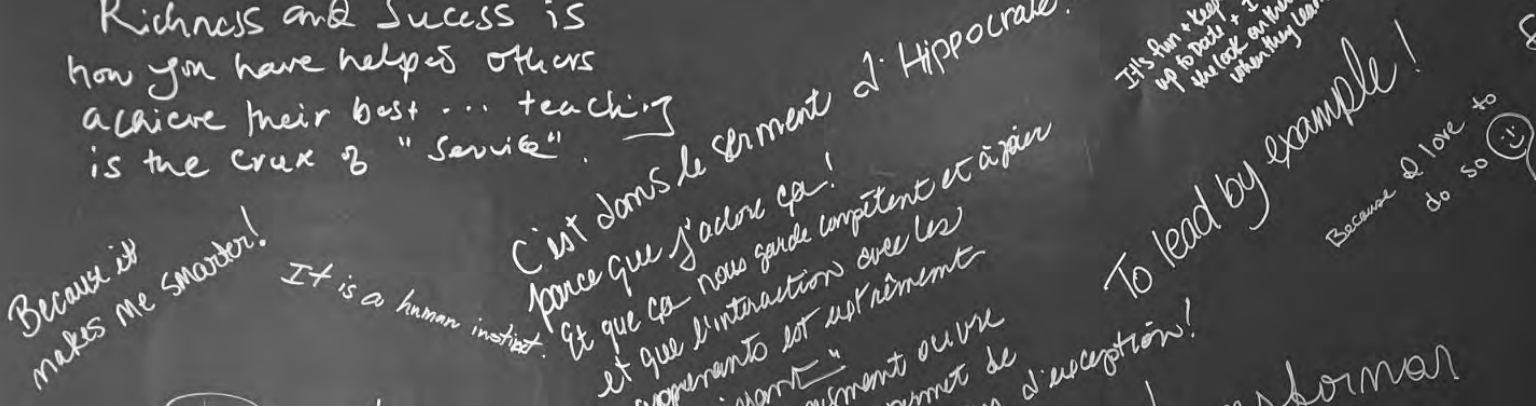 Richness and Sucess is
how you have helped others
achieve their best ... teaching
is the crux of "service".
Because it
makes me smarter!
It is a human instinct.
C'est dans le serment d'Hippocrate.
parce que j'adore ça!
Et que ça nous garde compétent et à jour
et que l'interaction avec les
apprenants est extrêmement
ouvre
permet de
d'exception!
It's fun + keep
up to date + I
the look on their
when they learn
To lead by example!
Because I love to
do so